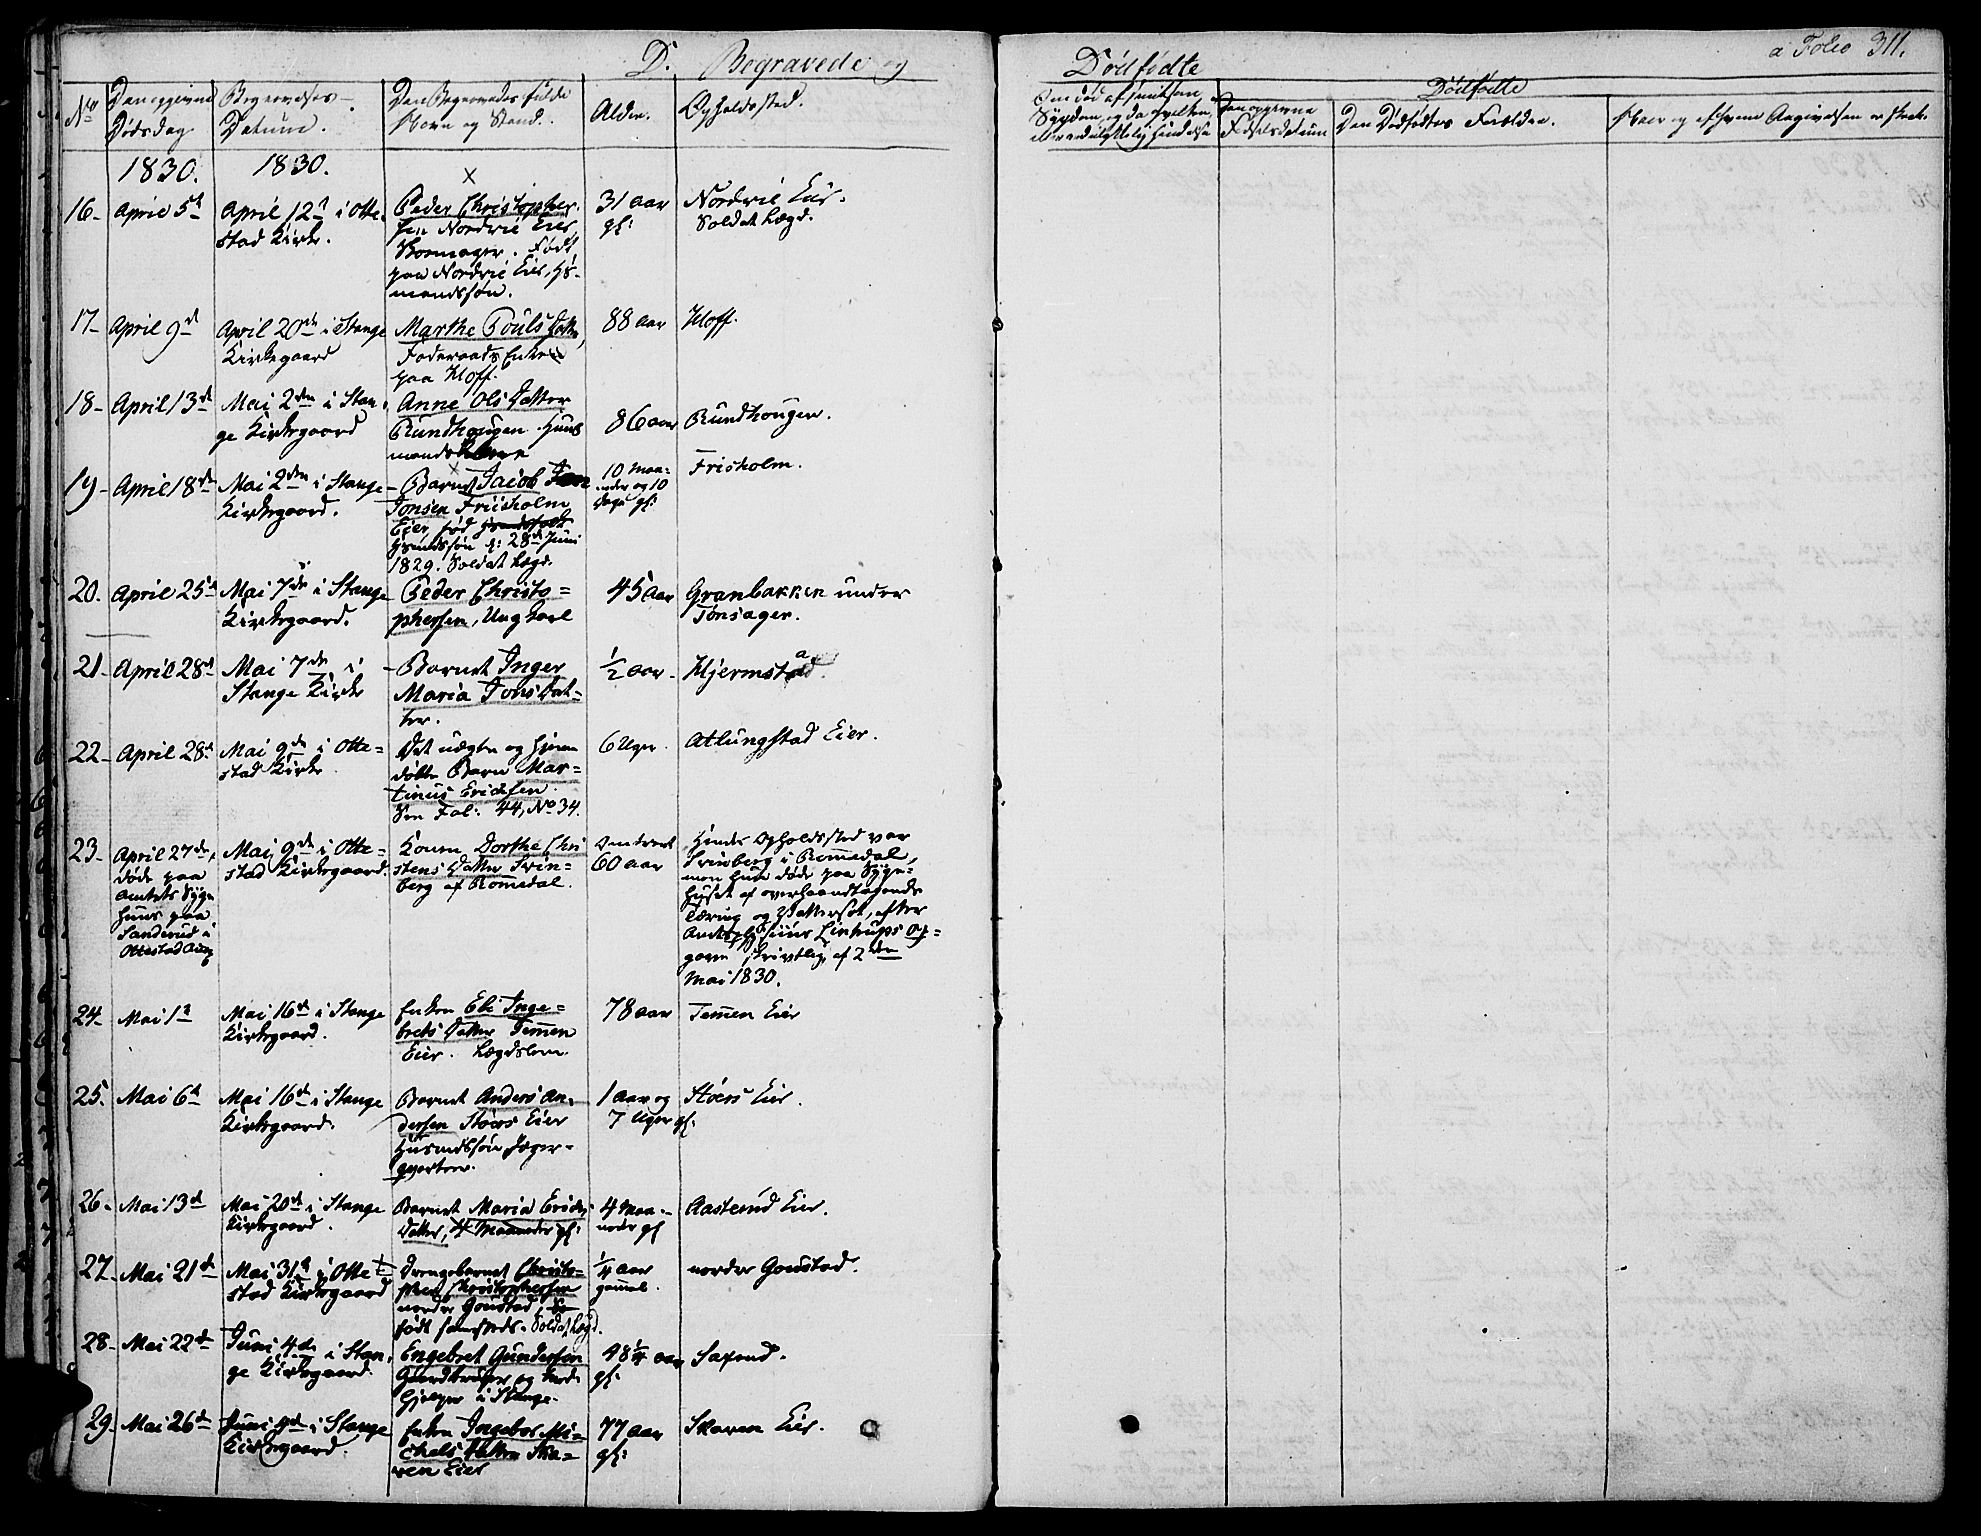 D. Begravede og
No
Den opgivne Dødsdag.
Begravelses-Datum.
Den Begravedes fulde Navn og Stand.
Alder.
Opholdssted.
1830. 1830.
16- April 5t April 12t i Otte-
stad Kirke.
Peder Christopher-
sen Nordvie Eier,
Født
paa Nordvie Eier, Hs-
mandssøn.
31 aar
gl:
Nordvie Eier.
Soldat Lægd.
17- April 9d April 20de i Stange
Kirkegaard
Marthe Pouls Datter,
Foderaads Enke
paa Hoff.
88 aar Hoff.
18- April 13d Mai 2den i Stan-
ge Kirkegaard
Anne Ols Datter
Rundhougen. Huus
mands
86 aar Rundhougen.
19- April 18de Mai 2den i Stange
Kirkegaard.
- Barnet Jacob
Jonsen Friisholm
Eier, fød
Husmdssøn d: 28d Juni
1829. Soldat Lægd.
10 Maa-
neder og 10
Dage gl:
Frisholm.
20. April 25d Mai 7de i Stange
Kirkegaard.
Peder Christo=
phersen, Ungkarl
45 aar Granbakken under
Tonsager.
21- April 28de Mai 7de i
Stange Kirke
- Barnet Inger
Maria Jons Dat-
ter.
½ aar- Hjermstad.
22- April 28d Mai 9de i Otte=
stad Kirke.
Det uægte og hjem
døbte Barn Mar=
tinus Ericksen.
See Fol: 44, No 34.
6 Uger. Atlungstad Eier.
23- April 27de,
døde paa
Amtets Syge
huus paa
Sanderud i
Ottestad Ang
Mai 9de i Otte=
stad Kirkegaard.
Konen Dorthe Chri
stens Datter Svin=
berg af Romedal.
Omtrent
60 aar
Hendes Opholdssted var
Svinberg i Romedal,
men hun døde paa Syge-
huset af overhaandtagende
Tæring og Vattersot, efter
Lintrups op=
gave skrivtlig af 2den
Mai 1830.
24- Mai 1t Mai 16de i Stange
Kirkegaard.
Enken Eli Inge=
brets Datter Temen
Eier. Lægdslem.
78 aar Temen Eier
25. Mai 6t Mai 16de i Stange
Kirkegaard.
Barnet Anders An-
dersen Støers Eier
Husmdssøn Jæger-
qvarteer.
1 aar og
7 Uger gl:
Støers Eier.
26- Mai 13d Mai 20de i Stange
Kirkegaard.
Barnet Maria Ericks
Datter, 4 Maaneder gl:
4 Maa-
neder gl
Aasterud Eier.
27- Mai 21de Mai 31t i Otte
stad Kirkegaard
Drengebarnet Christo=
pher Christophersen
nordre Gonstad,
født samsteds. Soldat Lægd.
¼ aar
gammel.
nordre Gonstad.
28- Mai 22de Juni 4de i Stan-
ge Kirkegaard.
Engebret Gundersen
Gaardbruger og Med-
hjelper i Stange.
48 ¼ aar
gl:
Saxrud.
29- Mai 26de Juni 4de i Stange
Kirkegaard.
Enken Ingebor Mi=
chels Datter Ska=
ren Eier
77 aar
gl:
Skaren Eier.
Dødfødte
a Folio 311.
Om død af smitsom
Sygdom, og da hvilken,
eller ved ulykkelig Hændelse
Dødfødte
Den opgivne
Fødselsdatum
Den Dødfødtes Forældre.
Naar og af hvem Angivelsen er skeet.